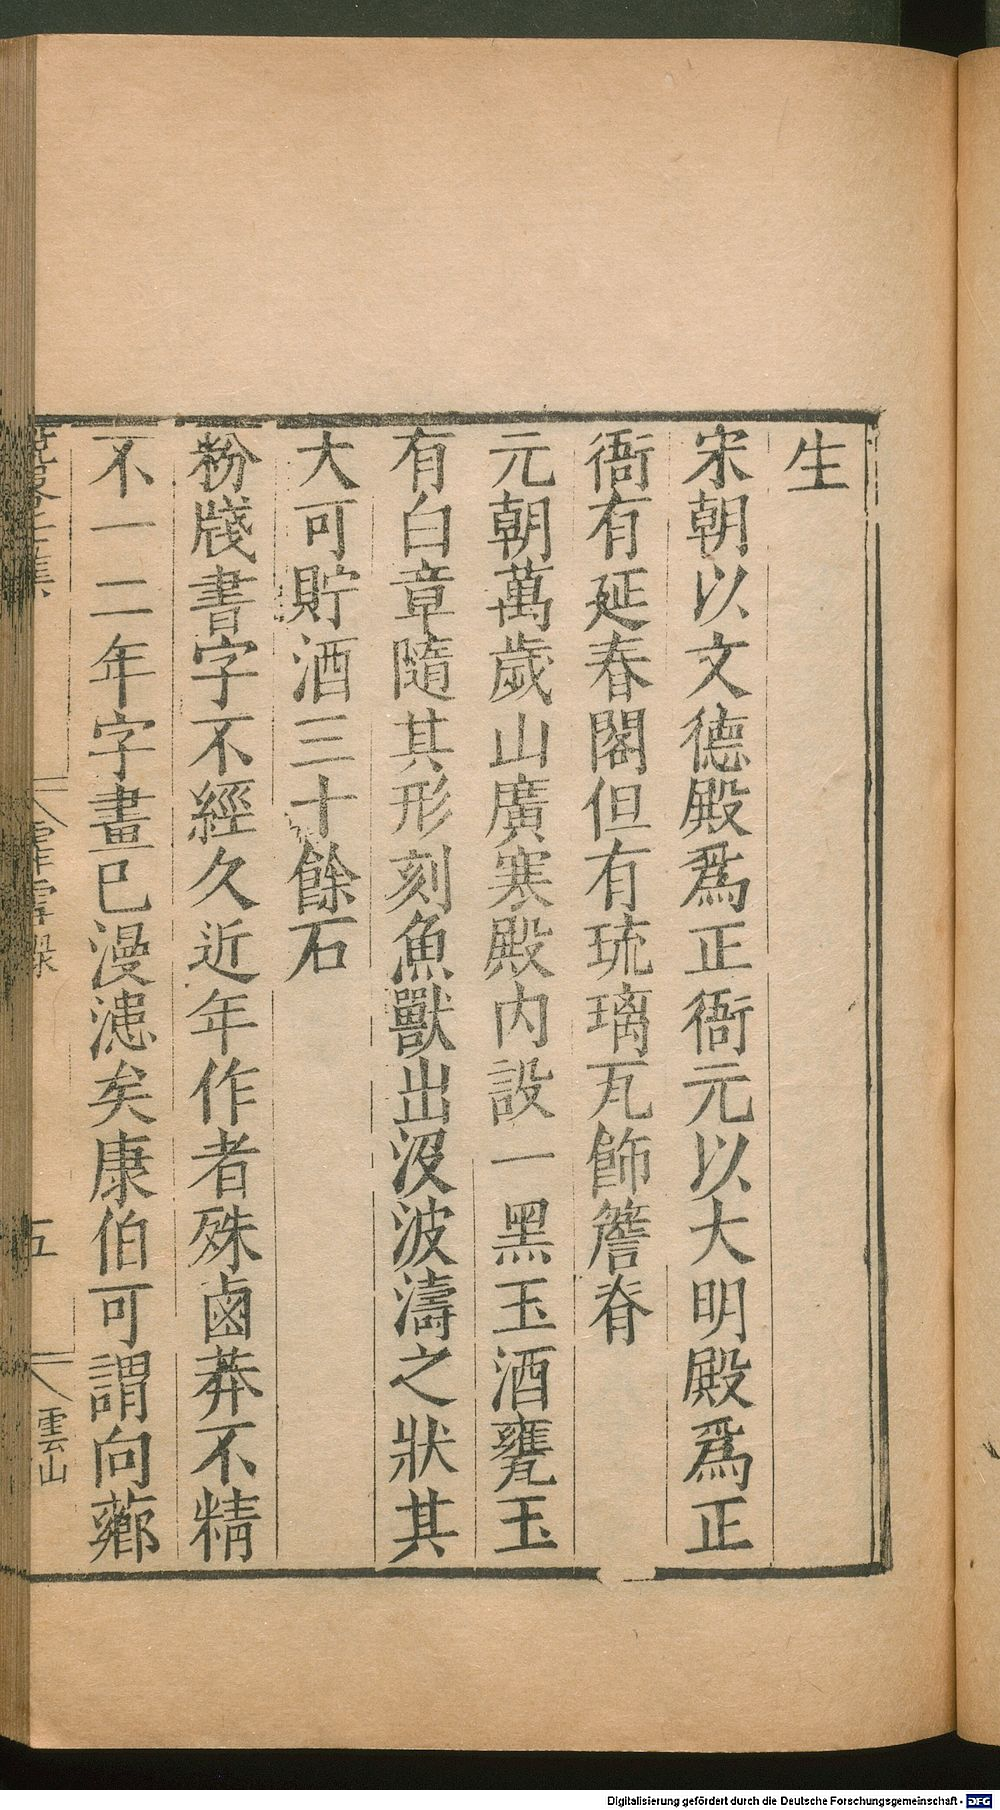 生
宋朝以文德殿爲正衙元以大明殿爲正
衙有延春閣但有琉璃瓦飾簷脊
元朝萬歲山廣寒殿内設一黑玉酒甕玉
有白章隨其形刻魚獸出沒波濤之狀其
大可貯酒三十餘石
粉牋書字不經久近年作者殊鹵莽不精
不一二年字畫已漫漶矣康伯可謂向薌
霏雪錄
五
雲山
Digitalisierung gefördert durch die Deutsche Forschungsgemeinschaft - DFG